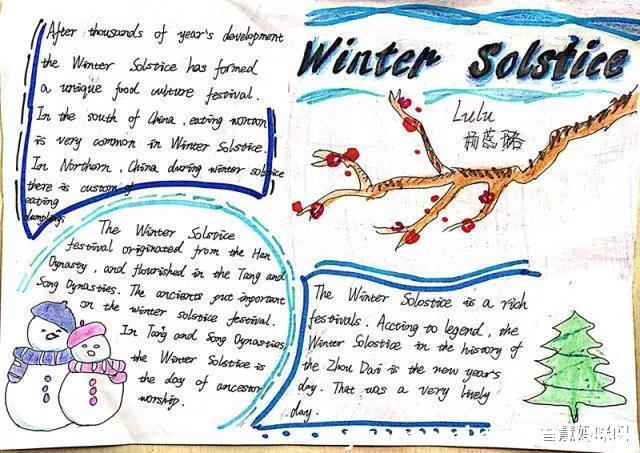 After thousands of year's development
the Winter Solstice has formed
a unique food culture festival.
In the south of China, eating wonton
is very common in Winter Solstice.
In Northern, China during winter solstice
there is custom of
eating
dumplings
Winter Solstice
Lulu
The Winter Solstice
festival originated from the Han
Dynasty, and flourished in the Tang and
Song Dynasties. The ancients put important
on the winter solstice festival.
In Tang and Song Dynasties
the Winter Solstice is
the day of ancestor
worship.
The Winter Solostice is a rich
festivals. Accting to legend, the
Winter Solostice in the history of
the Zhou Dai is the new years
day. That was a very lively
day.